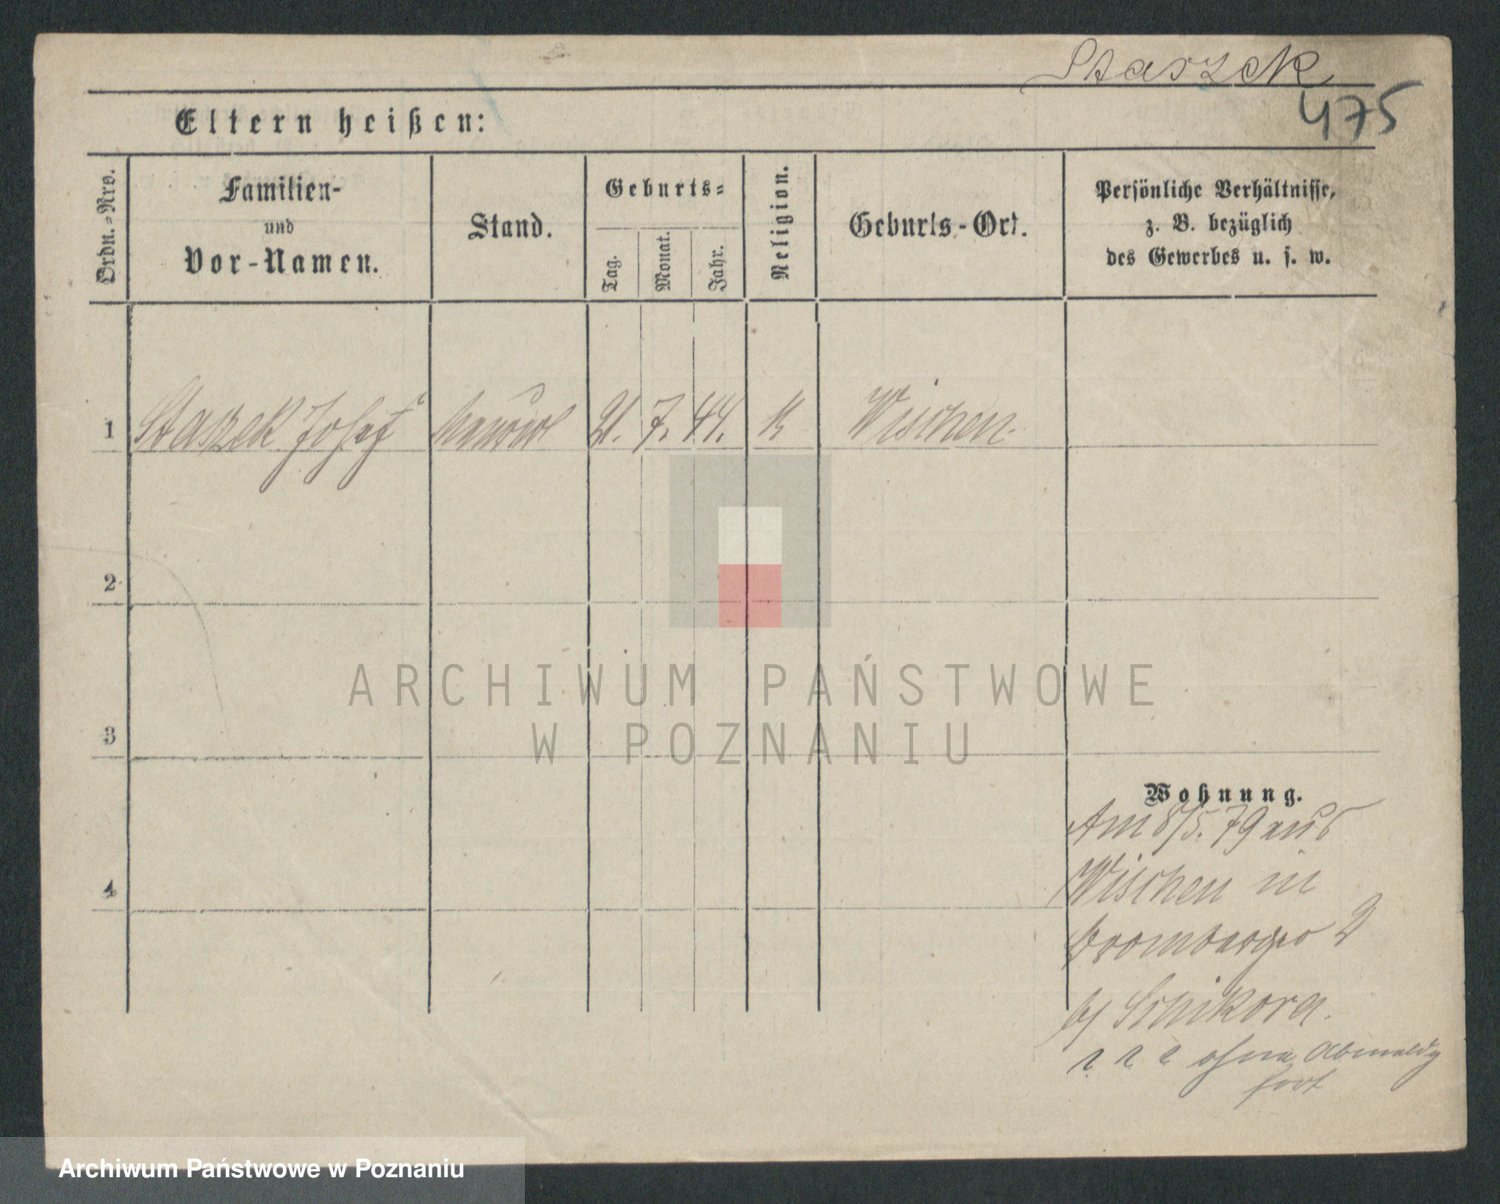 Staszek
475
Eltern heißen:
Ordn.-Nro.
Familien-
und
Vor-Namen.
Stand.
Geburts-
Tag.
Monat.
Jahr.
Religion.
Geburts-Ort.
Persönliche Verhältnisse,
z. B. bezüglich
des Gewerbes u. s. w.
1 Staszek Josef 21. 7. 44. K Wischen.
2
ARCHIWUM PAŃSTWOWE
W POZNANIU
3
Wohnung.
Am 8/5. 79 aus
Wischen in
4
b/ Sznikora.
ohne Abmeldg
fort
Archiwum Państwowe w Poznaniu